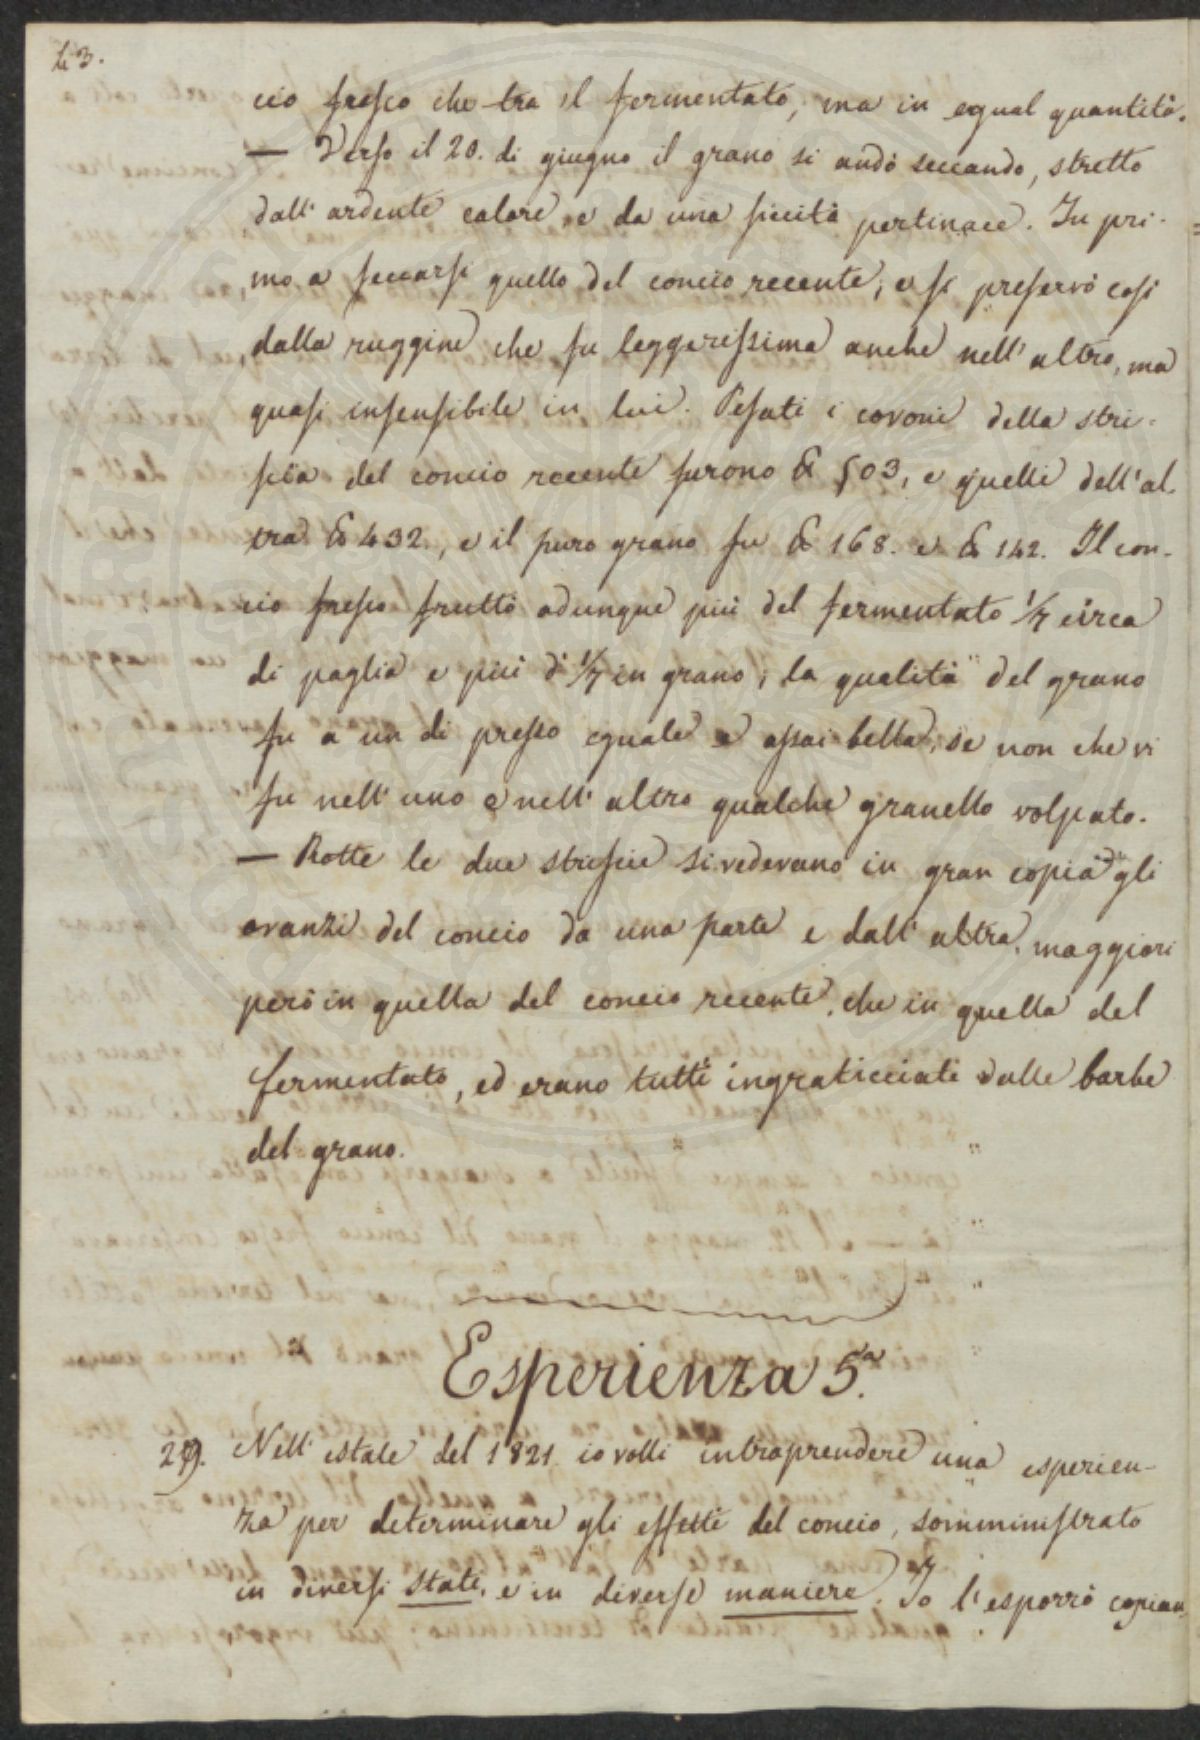 43.
cio fresco che tra il fermentato, ma in egual quantità.
— Verso il 20. di giugno il grano si andò seccando, stretto
dall'ardente calore, e da una siccità pertinace. Fu pri-
mo a seccarsi quello del concio recente, e si preservò così
dalla ruggine che fu leggerissima anche nell'altro, ma
quasi insensibile in lui. Pesati i covoni della stri-
scia del concio recente furono ℔ 503, e quelli dell'al-
tra ℔ 432., e il puro grano fu ℔ 168. e ℔ 142. Il con-
cio fresco fruttò adunque più del fermentato 1/7 circa
di paglia e più d'1/7 in grano; la qualità del grano
fu a un di presso eguale e assai bella, se non che vi
fu nell'uno e nell'altro qualche granello volpato.
— Rotte le due striscie si vedevano in gran copia gli
avanzi del concio da una parte e dall'altra, maggiori
però in quella del concio recente, che in quella del
fermentato, ed erano tutti ingraticciati dalle barbe
del grano.
Esperienza 5.a
29. Nell'estate del 1821 io volli intraprendere una esperien-
za per determinare gli effetti del concio, somministrato
in diversi stati, e in diverse maniere. Io l'esporrò copian